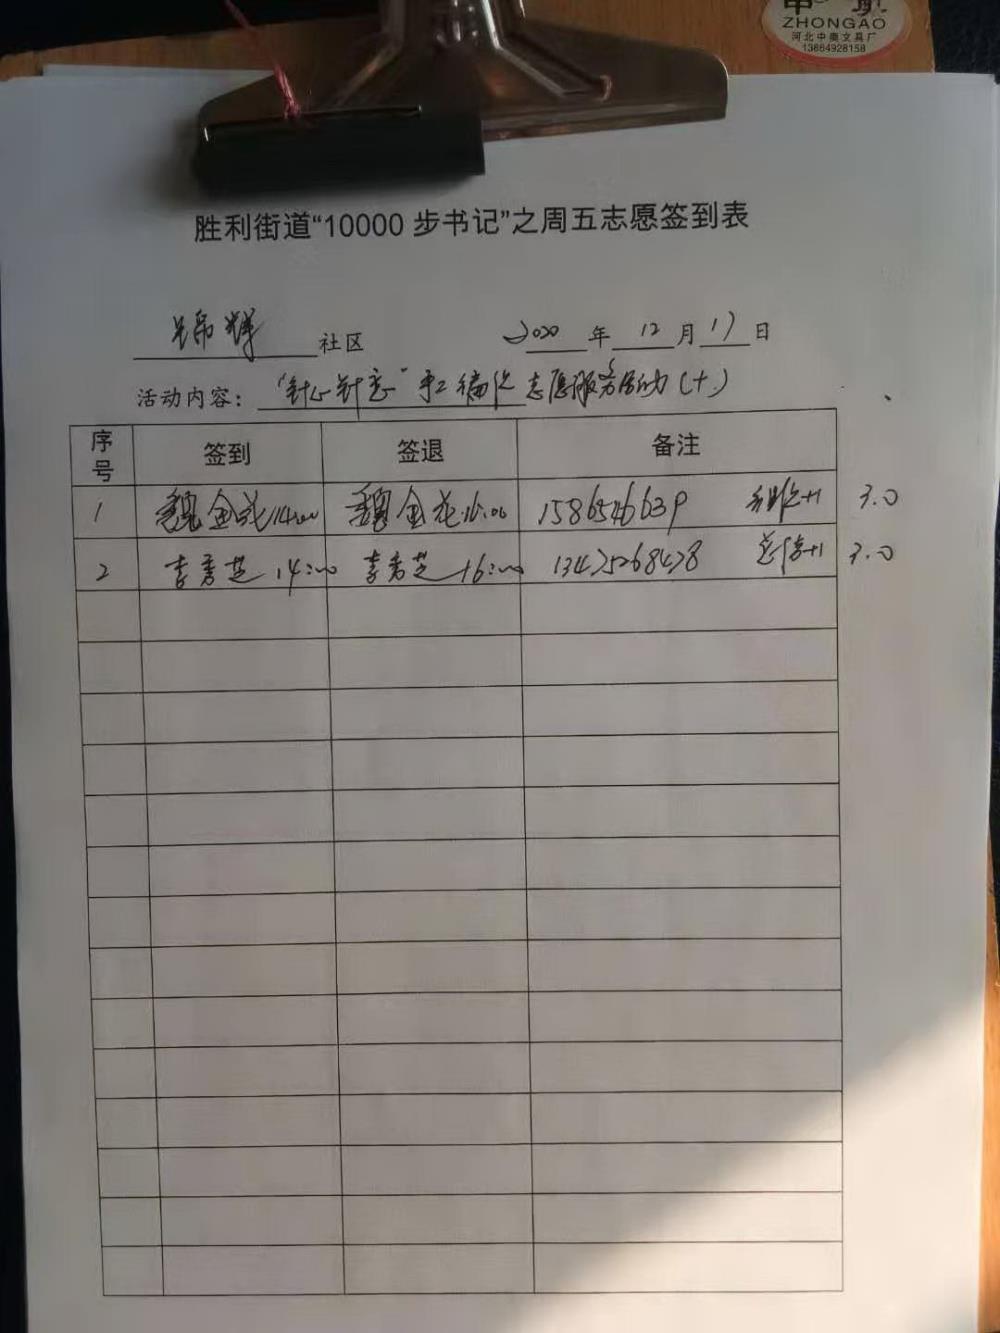 ZHONGAO
河北中奥文具厂
13864928158
胜利街道“10000 步书记”之周五志愿签到表
锦辉 社区 2020 年 12 月 17 日
活动内容： 手工编织 志愿服务活动（十）
序号 签到 签退 备注
1 魏金花 14:00 魏金花 16:00 3.0
2 李秀芝 14:00 李秀芝 16:00 +1 3.0